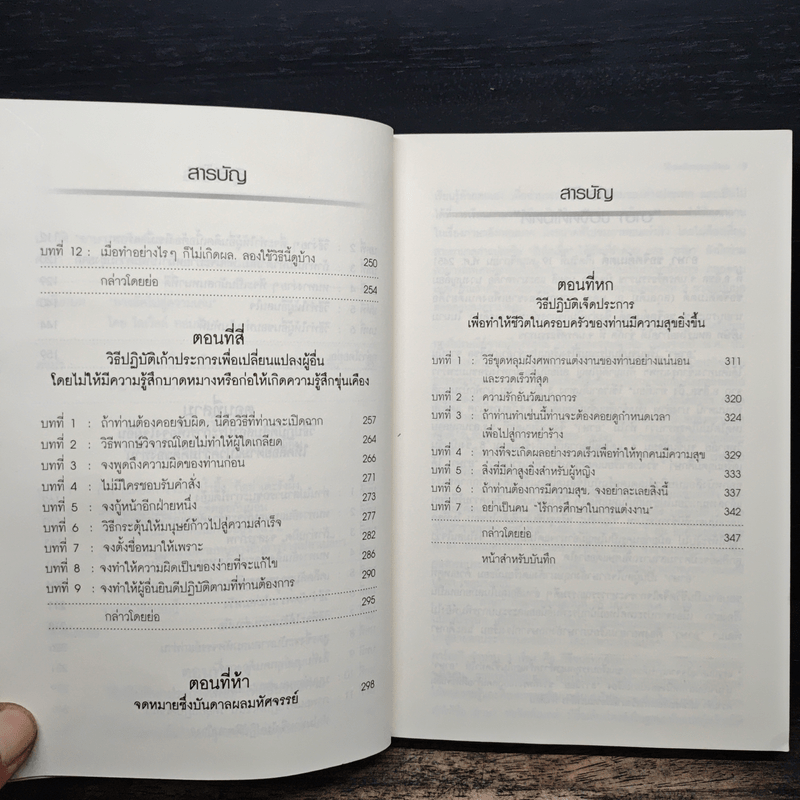 สารบัญ
บทที่ 12 : เมื่อทำอย่างไรๆ ก็ไม่เกิดผล. ลองใช้วิธีนี้ดูบ้าง 250
กล่าวโดยย่อ 254
ตอนที่สี่
วิธีปฏิบัติเก้าประการเพื่อเปลี่ยนแปลงผู้อื่น
โดยไม่ให้มีความรู้สึกบาดหมางหรือก่อให้เกิดความรู้สึกขุ่นเคือง
บทที่ 1 : ถ้าท่านต้องคอยจับผิด, นี่คือวิธีที่ท่านจะเปิดฉาก 257
บทที่ 2 : วิธีพากษ์วิจารณ์โดยไม่ทำให้ผู้ใดเกลียด 264
บทที่ 3 : จงพูดถึงความผิดของท่านก่อน 266
บทที่ 4 : ไม่มีใครชอบรับคำสั่ง 271
บทที่ 5 : จงกู้หน้าอีกฝ่ายหนึ่ง 273
บทที่ 6 : วิธีกระตุ้นให้มนุษย์ก้าวไปสู่ความสำเร็จ 277
บทที่ 7 : จงตั้งชื่อหมาให้เพราะ 282
บทที่ 8 : จงทำให้ความผิดเป็นของง่ายที่จะแก้ไข 286
บทที่ 9 : จงทำให้ผู้อื่นยินดีปฏิบัติตามที่ท่านต้องการ 290
กล่าวโดยย่อ 295
ตอนที่ห้า
จดหมายซึ่งบันดาลผลมหัศจรรย์ 298
สารบัญ
ตอนที่หก
วิธีปฏิบัติเจ็ดประการ
เพื่อทำให้ชีวิตในครอบครัวของท่านมีความสุขยิ่งขึ้น
บทที่ 1 : วิธีขุดหลุมฝังศพการแต่งงานของท่านอย่างแน่นอน 311
และรวดเร็วที่สุด
บทที่ 2 : ความรักอันวัฒนาถาวร 320
บทที่ 3 : ถ้าท่านทำเช่นนี้ท่านจะต้องคอยดูกำหนดเวลา 324
เพื่อไปสู่การหย่าร้าง
บทที่ 4 : ทางที่จะเกิดผลอย่างรวดเร็วเพื่อทำให้ทุกคนมีความสุข 329
บทที่ 5 : สิ่งที่มีค่าสูงยิ่งสำหรับผู้หญิง 333
บทที่ 6 : ถ้าท่านต้องการมีความสุข, จงอย่าละเลยสิ่งนี้ 337
บทที่ 7 : อย่าเป็นคน "ไร้การศึกษาในการแต่งงาน" 342
กล่าวโดยย่อ 347
หน้าสำหรับบันทึก